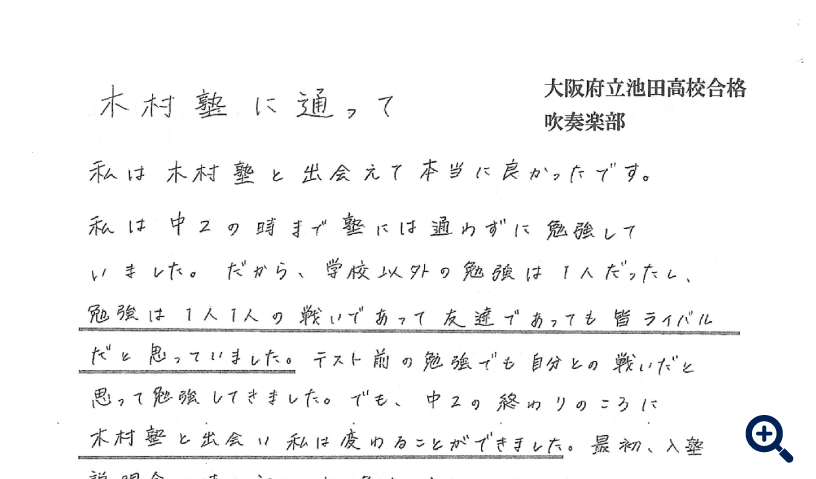 木村塾に通って
大阪府立池田高校合格
吹奏楽部
私は木村塾と出会えて本当に良かったです。
私は中2の時まで塾には通わずに勉強して
いました。だから、学校以外の勉強は1人だったし、
勉強は1人1人の戦いであって友達であっても皆ライバル
だと思っていました。テスト前の勉強でも自分との戦いだと
思って勉強してきました。でも、中2の終わりのころに
木村塾と出会い私は変わることができました。最初、入塾